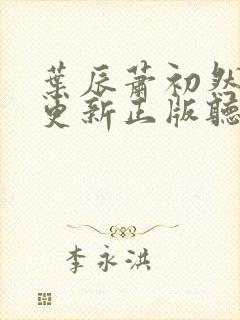 葉辰蕭初然
更新正版聽
李永洪